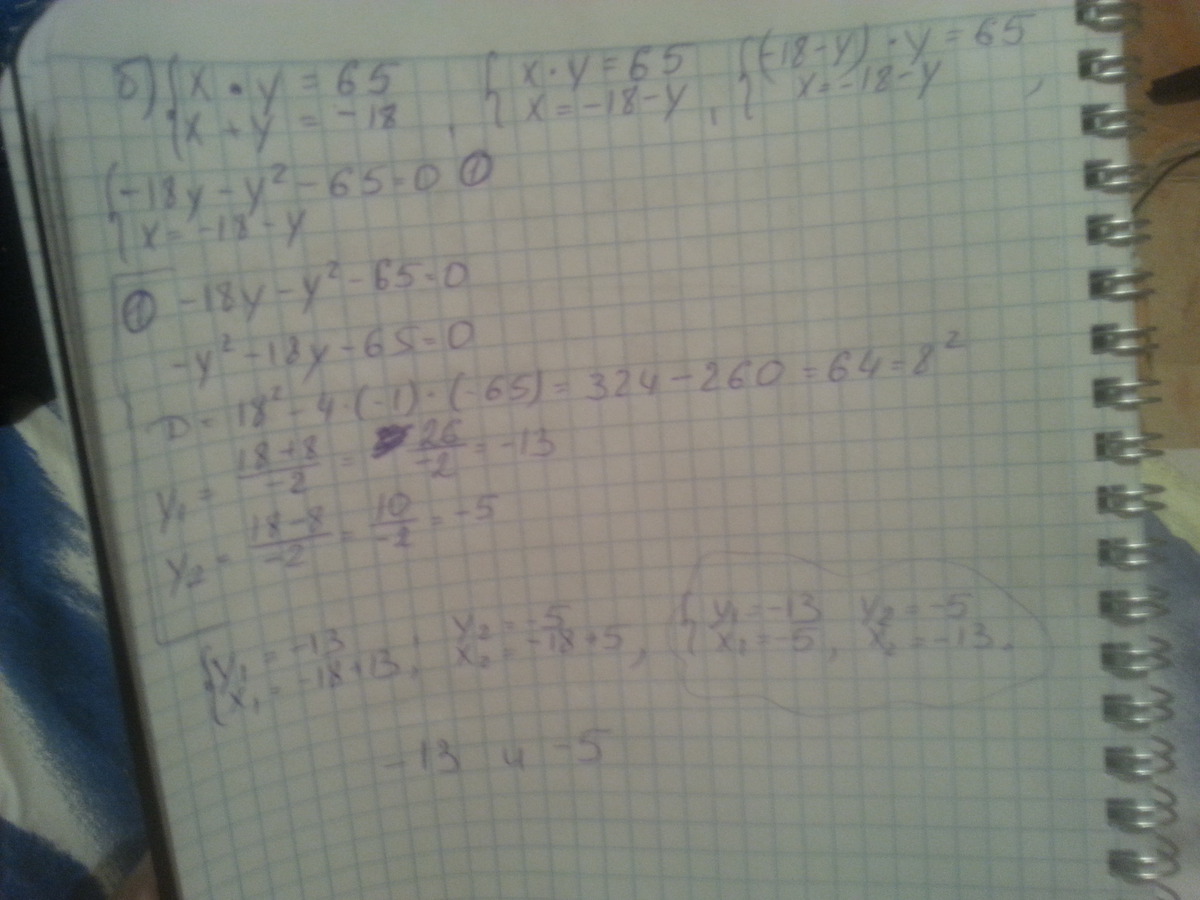 б) { x · y = 65   { x · y = 65   { (-18-y) · y = 65
{ x + y = -18 , { x = -18 - y , { x = -18 - y ,
{ -18y - y² - 65 = 0 ①
{ x = -18 - y
① -18y - y² - 65 = 0
-y² - 18y - 65 = 0
D = 18² - 4 · (-1) · (-65) = 324 - 260 = 64 = 8²
y₁ = (18+8)/-2 = 26/-2 = -13
y₂ = (18-8)/-2 = 10/-2 = -5
{ y₁ = -13   y₂ = -5   { y₁ = -13   y₂ = -5
{ x₁ = -18+13 ; x₂ = -18+5 , { x₁ = -5 , x₂ = -13 .
-13 и -5